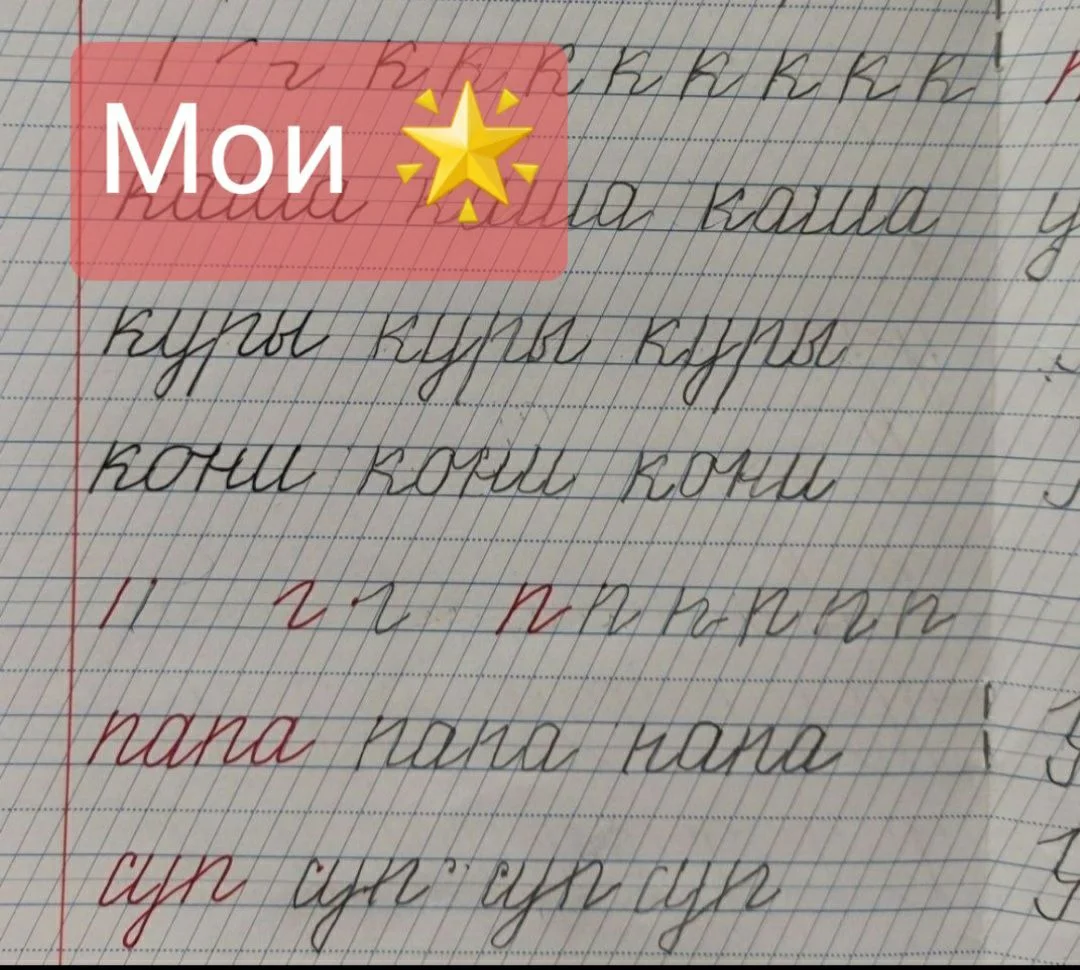 г к к к к к к к к
Мои
каша каша каша
куры куры куры
кони кони кони
г г п п п п п п
папа папа папа
суп суп суп суп